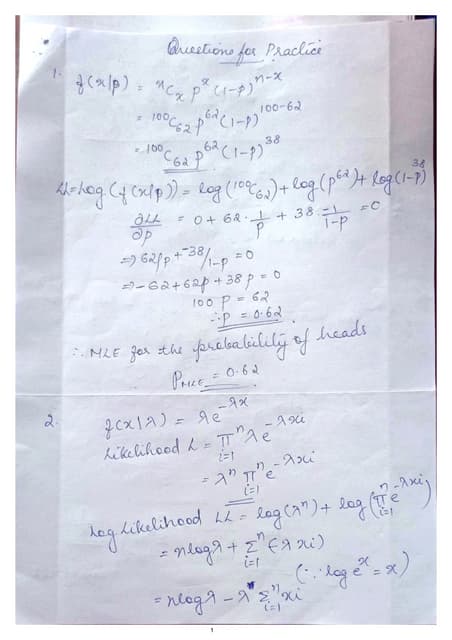 Questions for Practice
1. f(x|p) = ⁿCₓ pˣ (1-p)ⁿ⁻ˣ
= ¹⁰⁰C₆₂ p⁶² (1-p)¹⁰⁰⁻⁶²
= ¹⁰⁰C₆₂ p⁶² (1-p)³⁸
LL = Log (f(x|p)) = log(¹⁰⁰C₆₂) + log(p⁶²) + log(1-p)³⁸
∂LL/∂p = 0 + 62 · 1/p + 38 · -1/1-p = 0
⇒ 62/p + -38/1-p = 0
⇒ -62 + 62p + 38p = 0
100 p = 62
∴ p = 0.62
∴ MLE for the probability of heads
P_MLE = 0.62
2. f(x|λ) = λe^-λx
Likelihood L = ∏ⁿᵢ₌₁ λe^-λxi
= λⁿ ∏ⁿᵢ₌₁ e^-λxi
Log Likelihood LL = log(λⁿ) + log(∏ⁿᵢ₌₁ e^-λxi)
= nlogλ + Σⁿᵢ₌₁ (-λxi)
(∵ log eˣ = x)
= nlogλ - λ Σⁿᵢ₌₁ xi
1